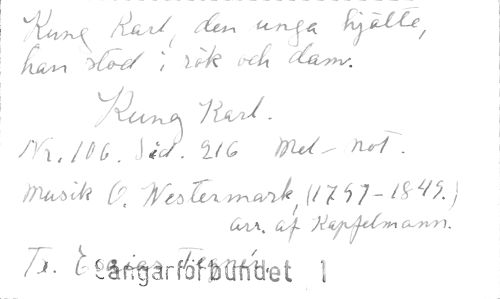 Kung Karl, den unga hjälte,
han stod i rök och dam.
Kung Karl.
Nr. 106. Sid. 216 Mel-not.
Musik O. Westermark, (1797-1849.)
arr. af Kapfelmann.
Te. Esaias Tegnér.
Sångarförbundet 1